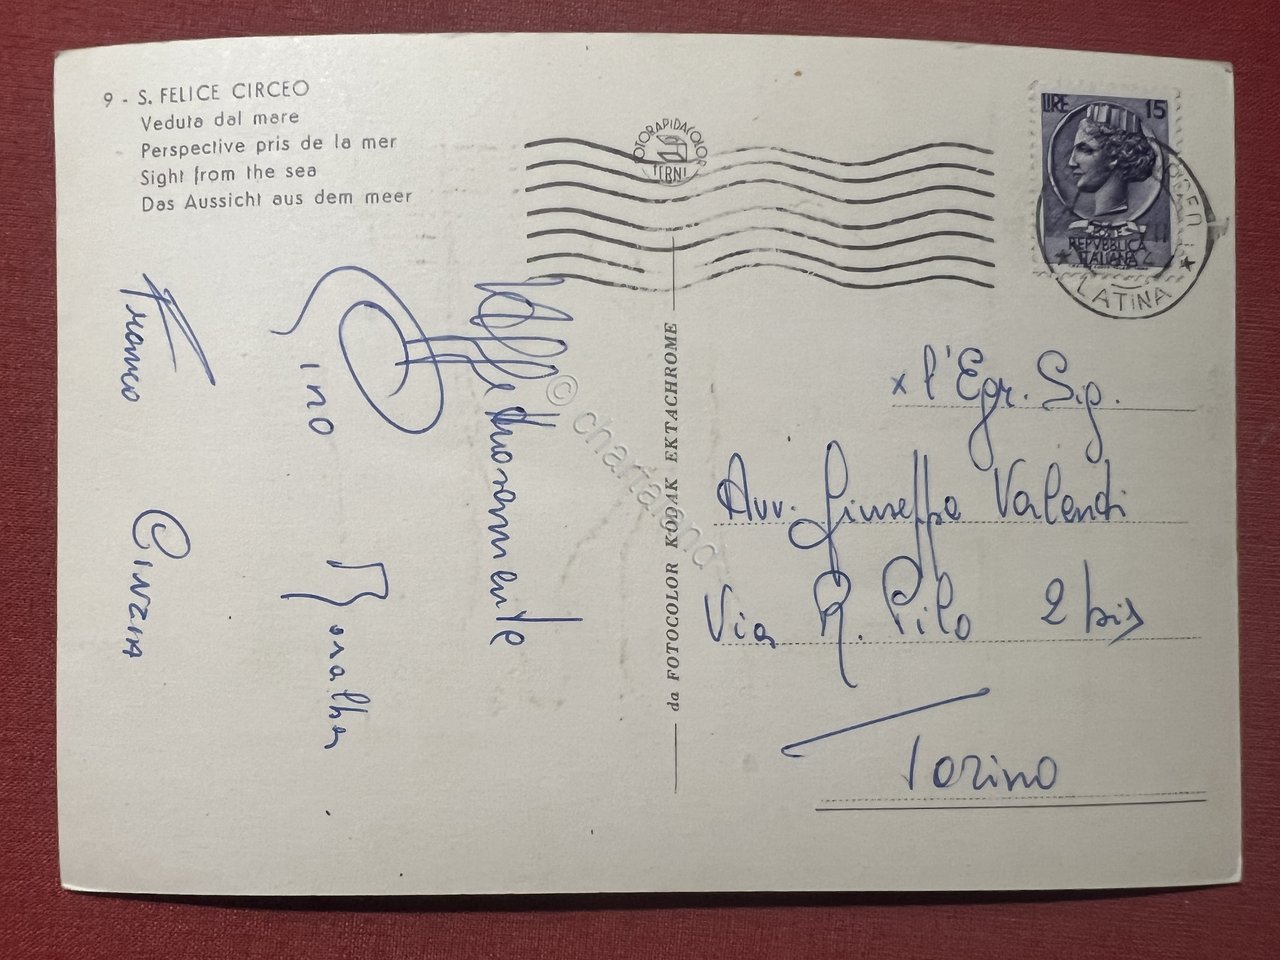 9 - S. FELICE CIRCEO
Veduta dal mare
Perspective pris de la mer
Sight from the sea
Das Aussicht aus dem meer
FOTORAPIDACOLOR
TERNI
LIRE 15
POSTE
REPVBBLICA
ITALIANA
LATINA
da FOTOCOLOR KODAK EKTACHROME
© chartaland
x l'Egr. Sig.
Avv. Giuseppe
Via R. Pilo 2 bis
Torino
Affettuosamente
Gino
Franco Cinzia